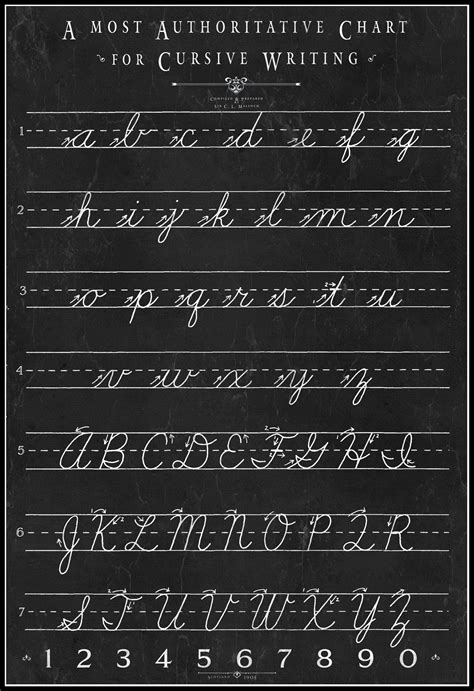 A MOST AUTHORITATIVE CHART
FOR CURSIVE WRITING
COMPILED & PREPARED
SIR C. L.
1 a b c d e f g
2 h i j k l m n
3 o p q r s t u
4 v w x y z
5 A B C D E F G H I
6 J K L M N O P Q R
7 S T U V W X Y Z
1 2 3 4 5 6 7 8 9 0
SCOTLAND 1908